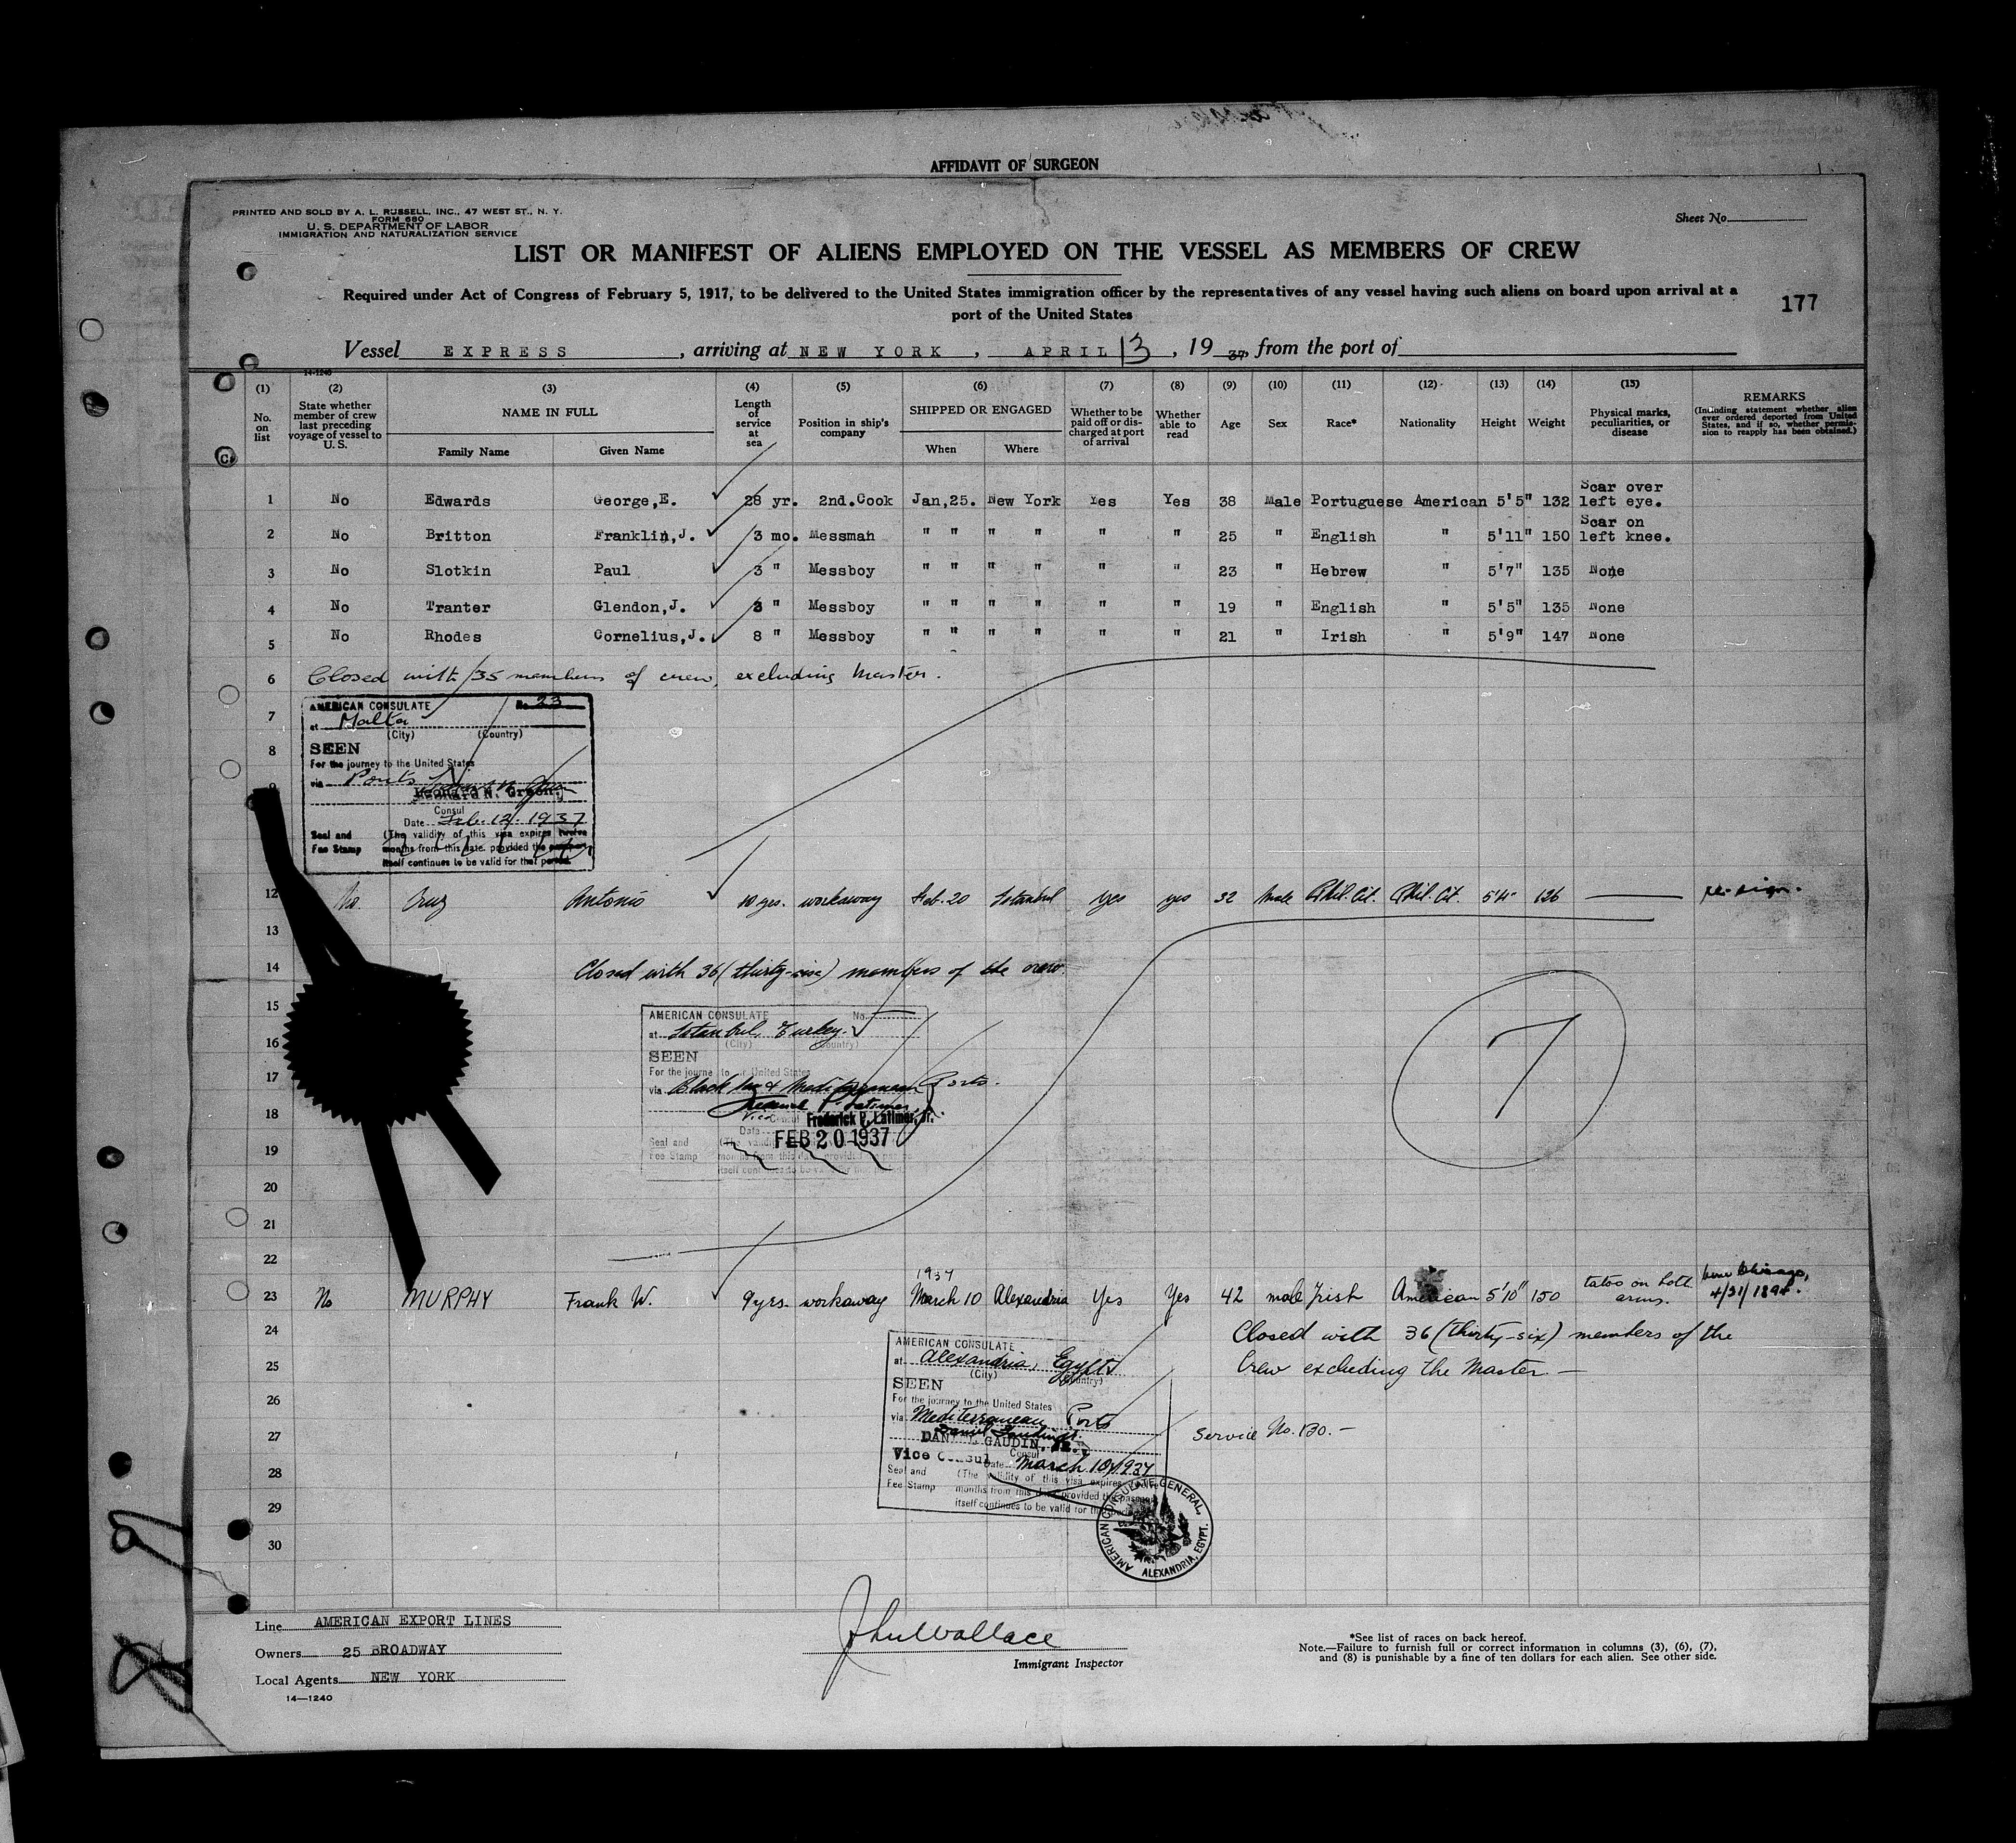 AFFIDAVIT OF SURGEON
PRINTED AND SOLD BY A. L. RUSSELL, INC., 47 WEST ST., N. Y.
FORM 680
U. S. DEPARTMENT OF LABOR
IMMIGRATION AND NATURALIZATION SERVICE
Sheet No.
LIST OR MANIFEST OF ALIENS EMPLOYED ON THE VESSEL AS MEMBERS OF CREW
Required under Act of Congress of February 5, 1917, to be delivered to the United States immigration officer by the representatives of any vessel having such aliens on board upon arrival at a
port of the United States
177
Vessel EXPRESS, arriving at NEW YORK, APRIL 13, 19 37, from the port of
14-1240
(1) No. on list
(2) State whether member of crew last preceding voyage of vessel to U. S.
(3) NAME IN FULL Family Name Given Name
(4) Length of service at sea
(5) Position in ship's company
(6) SHIPPED OR ENGAGED When Where
(7) Whether to be paid off or discharged at port of arrival
(8) Whether able to read
(9) Age
(10) Sex
(11) Race*
(12) Nationality
(13) Height
(14) Weight
(15) Physical marks, peculiarities, or disease
REMARKS (Including statement whether alien ever ordered deported from United States, and if so, whether permission to reapply has been obtained.)
1 No Edwards George,E. 28 yr. 2nd.Cook Jan,25. New York Yes Yes 38 Male Portuguese American 5'5" 132 Scar over left eye.
2 No Britton Franklin,J. 3 mo. Messman " " " " " " 25 " English " 5'11" 150 Scar on left knee.
3 No Slotkin Paul 3 " Messboy " " " " " " 23 " Hebrew " 5'7" 135 None
4 No Tranter Glendon,J. 3 " Messboy " " " " " " 19 " English " 5'5" 135 None
5 No Rhodes Cornelius,J. 8 " Messboy " " " " " " 21 " Irish " 5'9" 147 None
6 Closed with 35 members of crew, excluding Master.
7
8
9
AMERICAN CONSULATE No. 23
at Malta
(City) (Country)
SEEN
For the journey to the United States
via Ports
Leonard N. Green
Consul
Date Feb. 12, 1937
Seal and Fee Stamp
(The validity of this visa expires twelve
months from this date provided the
itself continues to be valid for that period.
12 No. Cruz Antonio 10 yrs. workaway Feb. 20 Istanbul yes yes 32 Male Phil. Cit. Phil. Cit. 5'4" 126 re-sign.
13
14 Closed with 36 (thirty-six) members of the crew.
15
16
17
18
19
20
21
22
AMERICAN CONSULATE No.
at Istanbul, Turkey.
(City) (Country)
SEEN
For the journey to the United States
via Black Sea & Mediterranean Ports.
Vice Consul Frederick P. Latimer, Jr.
Date
FEB 20 1937
Seal and Fee Stamp
7
23 No MURPHY Frank W. 9 yrs. workaway 1937 March 10 Alexandria Yes Yes 42 male Irish American 5'10" 150 tatoo on both arms. born Chicago, 4/21/1894.
24 Closed with 36 (thirty-six) members of the
25 Crew excluding the Master. —
26
27 Service No. 130. —
28
29
30
AMERICAN CONSULATE
at Alexandria, Egypt
(City) (Country)
SEEN
For the journey to the United States
via Mediterranean Ports
DANIEL GAUDIN, JR.,
Vice Consul
Date March 10, 1937
Seal and Fee Stamp
(The validity of this visa expires
months from this date provided the passport
itself continues to be valid for
AMERICAN CONSULATE GENERAL, ALEXANDRIA, EGYPT.
Line AMERICAN EXPORT LINES
Owners 25 BROADWAY
Local Agents NEW YORK
14—1240
John Wallace
Immigrant Inspector
*See list of races on back hereof.
Note.—Failure to furnish full or correct information in columns (3), (6), (7),
and (8) is punishable by a fine of ten dollars for each alien. See other side.